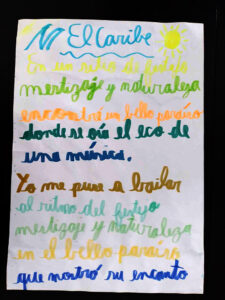 El Caribe
En un ritmo de festejo
mertizaje y naturaleza
encontre un bello paraiso
donde se oía el eco de
una música.
Yo me puse a bailar
al ritmo del festejo
mertizaje y naturaleza
en el bello paraiso
que mostró su encanto